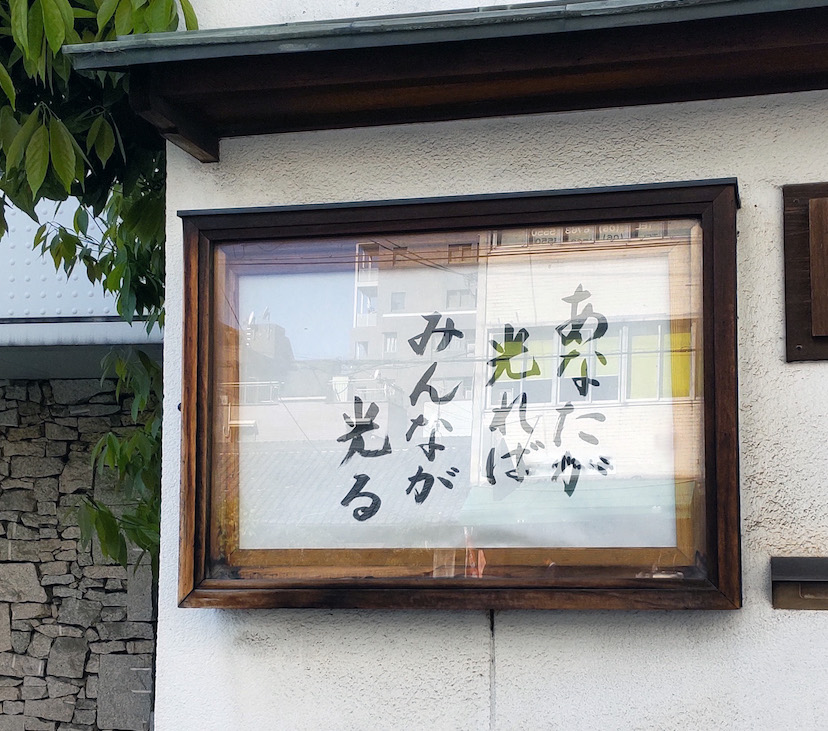 あなたが
光れば
みんなが
光る